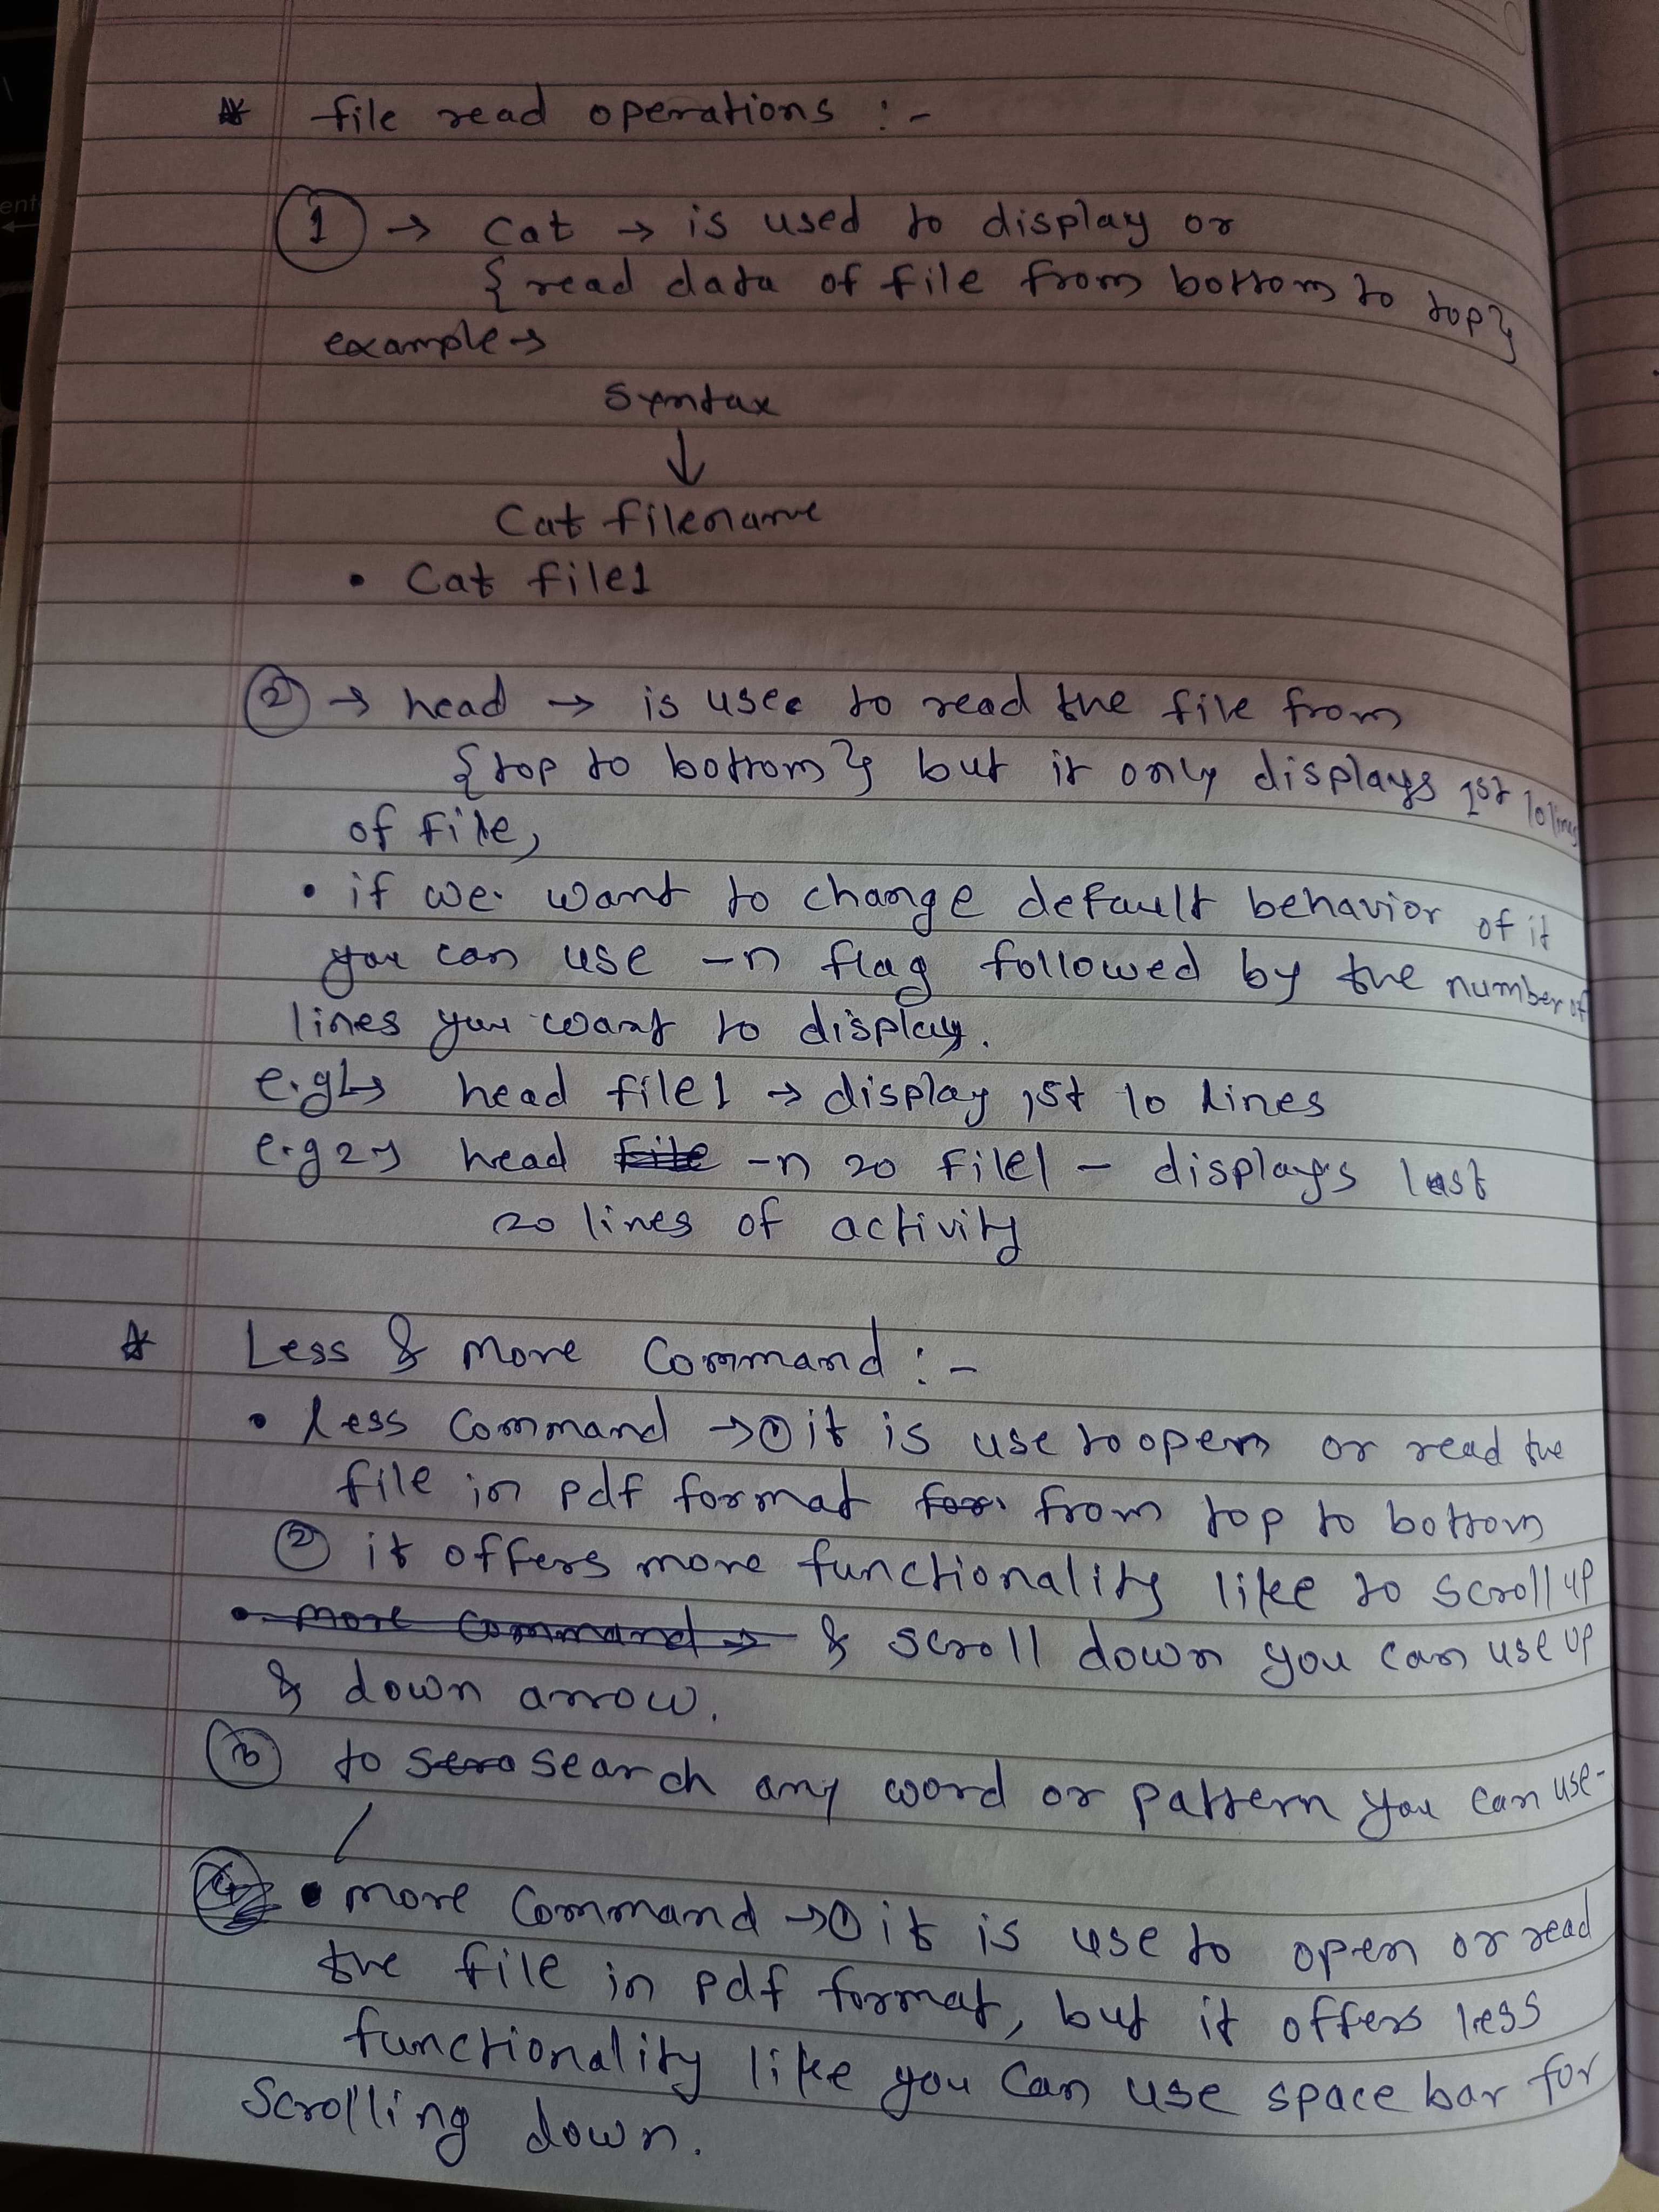 * file read operations :-
1 → Cat → is used to display or
{ read data of file from bottom to top}
example →
Syntax
↓
Cat filename
• Cat file1
2 → head → is use to read the file from
{ top to bottom } but it only displays 1st 10 lines
of file,
• if we want to change default behavior of it
you can use -n flag followed by the number of
lines you want to display.
e.g1→ head file1 → display 1st 10 lines
e.g2→ head file -n 20 file1 - displays last
20 lines of activity
* Less & More Command :-
• Less Command → ① it is use to open or read the
file in pdf format for from top to bottom
② it offers more functionality like to scroll up
• more command → & scroll down you can use up
& down arrow.
③ to scro search any word or pattern you can use-
/
• more Command → ① it is use to open or read
the file in pdf format, but it offers less
functionality like you can use space bar for
Scrolling down.